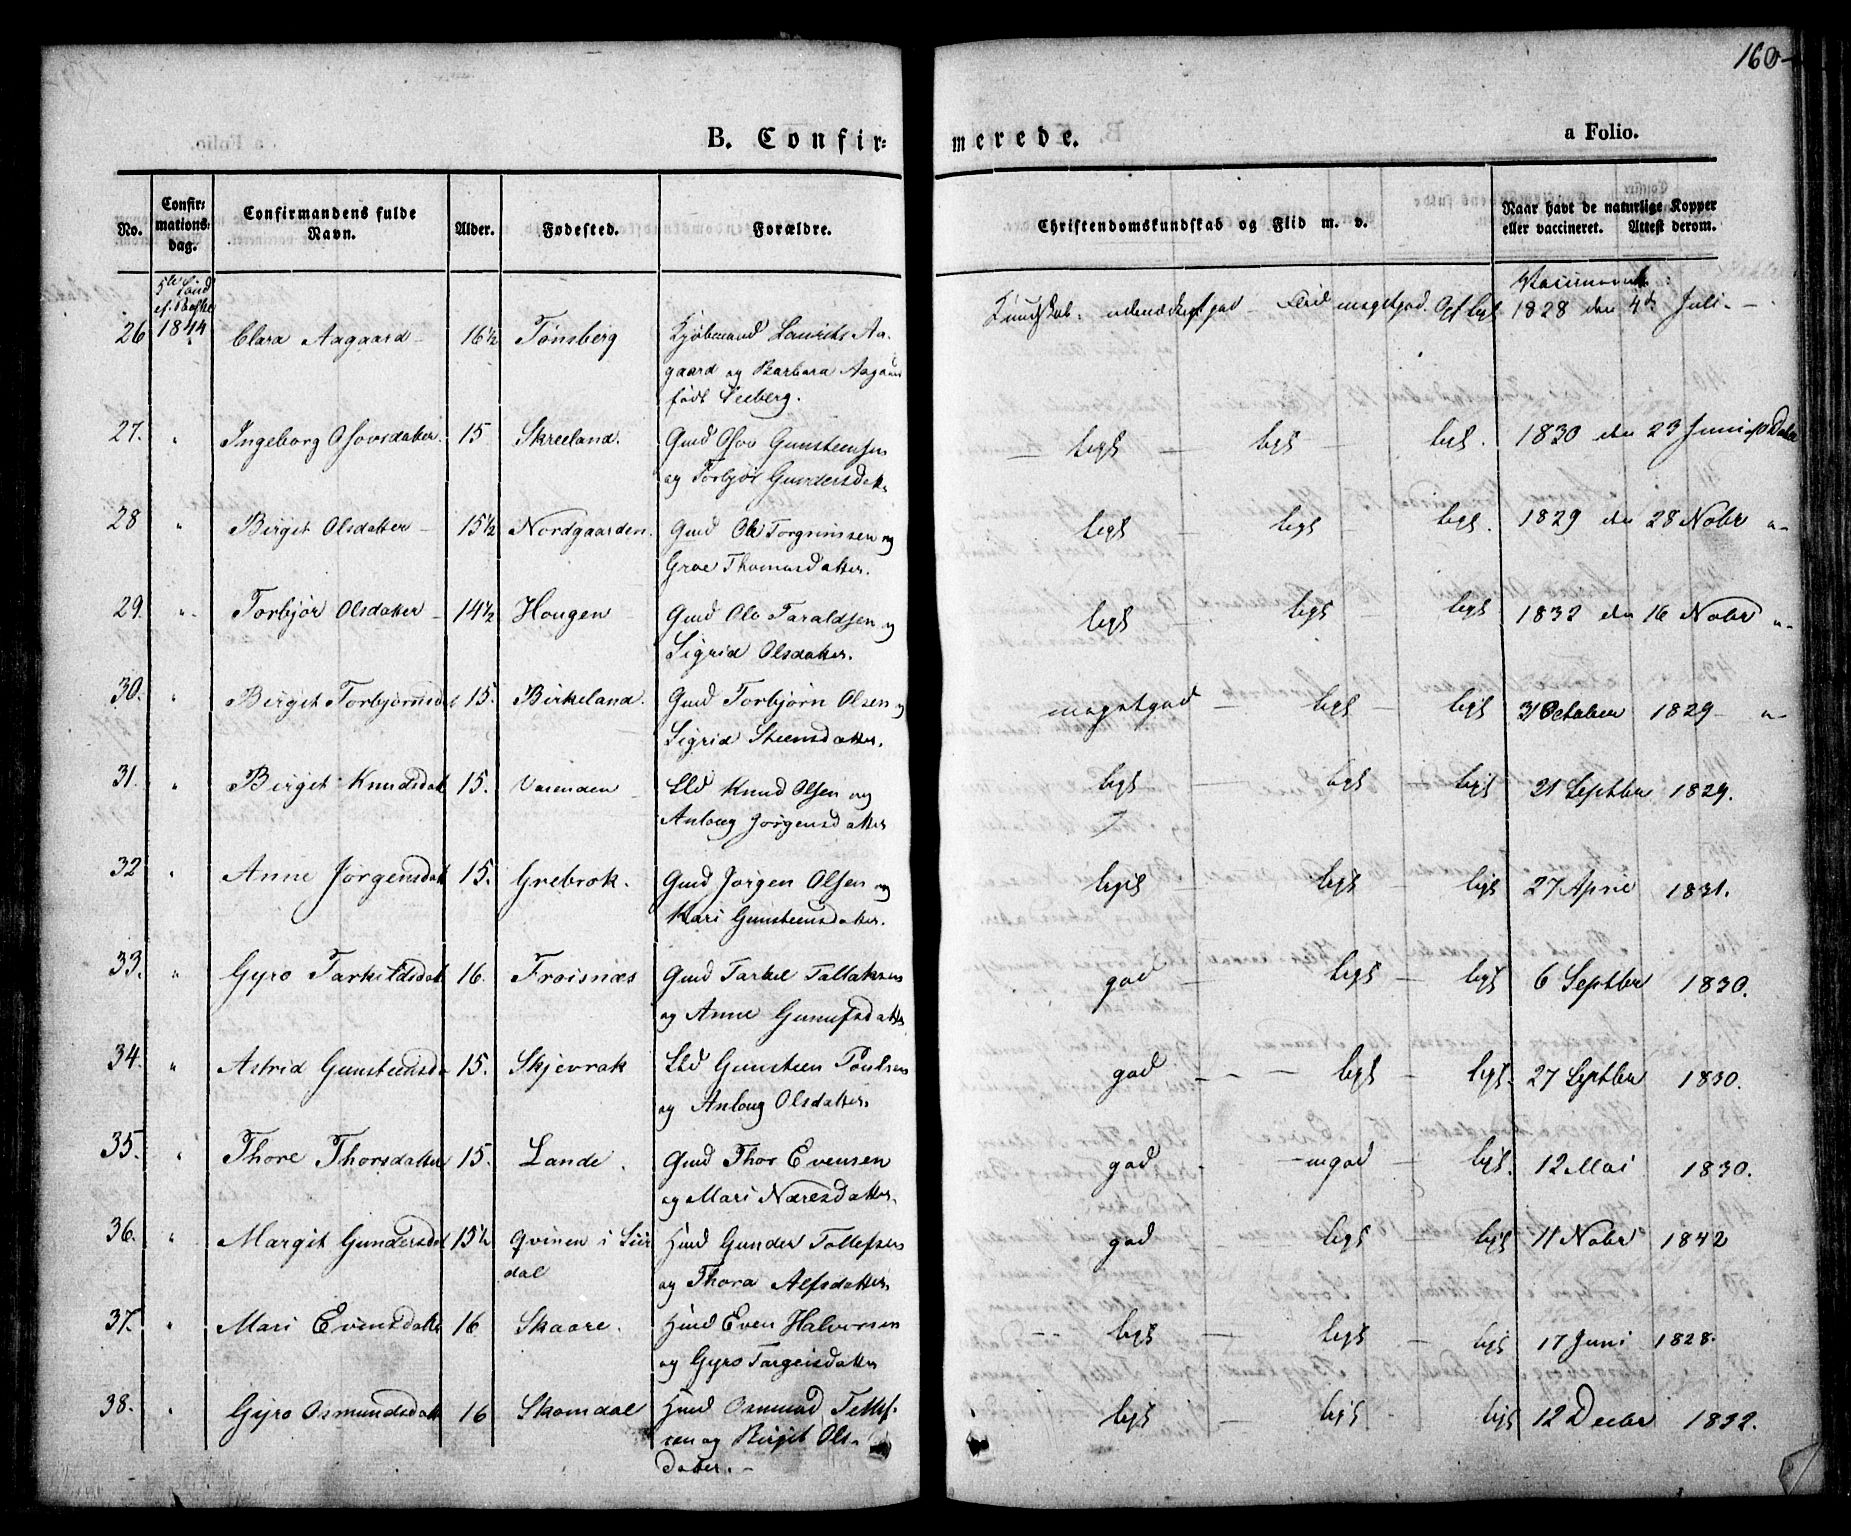 160
B. Confir=
merede.
a Folio.
No.
Confir=
mations=
dag.
Confirmandens fulde
Navn.
Alder.
Fødested.
Forældre.
Christendomskundskab og Flid m. v.
Naar havt de naturlige Kopper
eller vaccineret. Attest derom.
26 1844 Clara Aagaard 16½ Tønsberg Kjøbmand Laurits Aa-
gaard og Barbara Aagaard
født Seeberg.
Kundskab: Flid megetgod. 1828 den 4de Juli
27. " Ingeborg Osovsdatter 15 Skreeland. Gmd Osov Gunsteensen
og Torbjør Gundersdatr
ligs ligs ligs. 1830 den 23 Juni
28 " Birget Olsdatter 15½ Nordgaarden. Gmd Ole Torgrimsen og
Groe Thomasdatter.
ligs ligs ligs. 1829 den 28 Nobr "
29. " Torbjør Olsdatter 14½ Hougen Gmd Ole Taraldsen og
Sigrid Olsdatter.
ligs ligs ligs 1832 den 16 Nobr "
30. " Birget Torbjørnsd 15. Birkeland. Gmd Torbjørn Olsen og
Sigrid Steensdatter.
megetgod ligs ligs 31 October 1829 "
31. " Birget Knudsdat 15. Gmd Knud Olsen og
Anlaug Jørgensdatter
ligs ligs ligs 21 Septbr 1829.
32 " Anne Jørgensdat 15. Grebrok. Gmd Jørgen Olsen og
Kari Gunsteensdatter.
ligs ligs ligs 27 April 1831.
33. " Gyro Tarkildsdat 16. Frøisnæs Gmd Tarkel Tallaksen
og Anne Gunufsdatter
god ligs ligs 6 Septber 1830.
34. " Astrid Gunsteensda 15. Skjevrak Gunsteen Poulsen
og Anlaug Olsdatter
god ligs ligs. 27 Septber 1830.
35. " Thore Thorsdatter 15. Lande. Gmd Thor Evensen
og Mari Næresdatter.
god mgod ligs. 12 Mai 1830.
36. " Margit Gundersdat 15½ Qvinen i Sir
dal Hmd Gunder Tollefsen
og Thora Alfsdatter
god ligs ligs 11 Nobr 1842
37. " Mari Evensdatter 16 Skaare. Hmd Even Halvorsen
og Gyro Targeisdatter
ligs ligs ligs 17 Juni 1828.
38. " Gyro Osmundsdatt 16 Skomdal Hmd Osmund Tellef-
sen og Birgit Ols-
datter.
ligs ligs ligs 12 Decbr 1832.